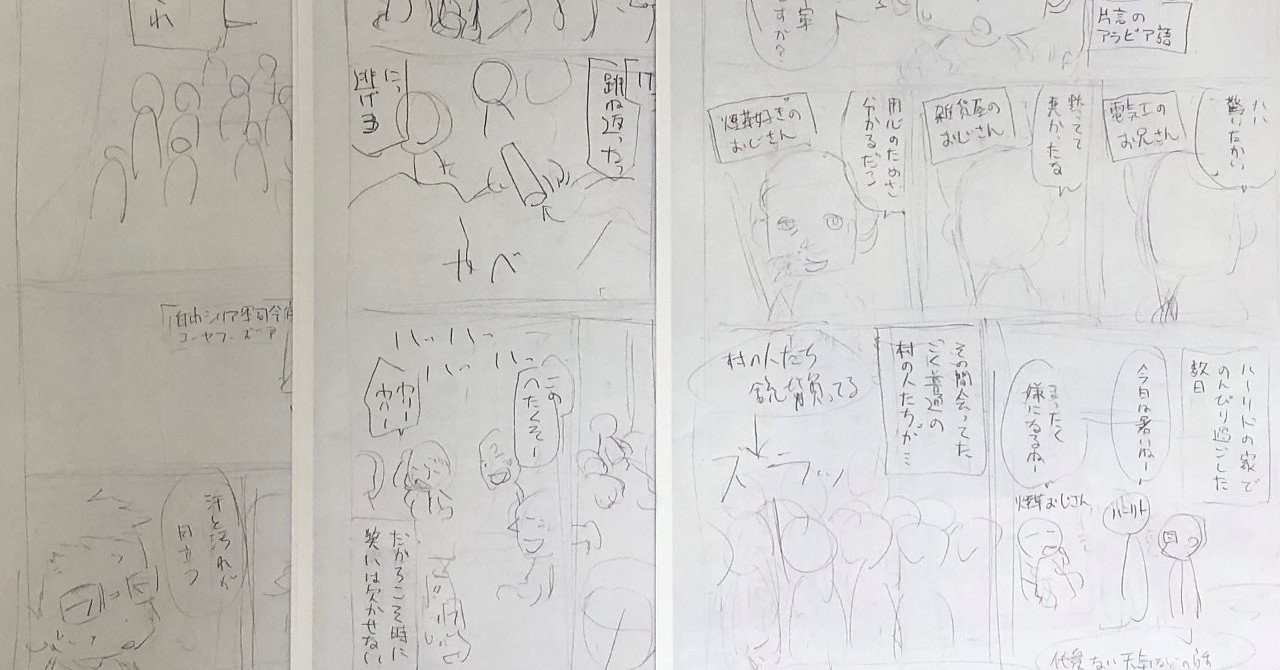 片言の
アラビア語
軍
すか？
ハハ
驚いたかい
電気工の
お兄さん
黙ってて
悪かったな
雑貨屋の
おじさん
用心のためさ
分かるだろ
煙草好きの
おじさん
ハーリドの家で
のんびり過ごした
数日
今日は暑いねー
まったく
嫌になるねー
煙草おじさん
ハーリド
その間会ってた
ごく普通の
村の人たちが…
村の人たち
銃背負ってる
ズラッ
跳ね返った
にっ
逃げろ
やべ
ハッハッ
ハハッ
この
へたくそー
ワハー
ワハー
だからこそ時に
笑いは欠かせない
れ
「自由シリア軍司令官
ユーセフ・ズーア
汗と汚れが
目立つ